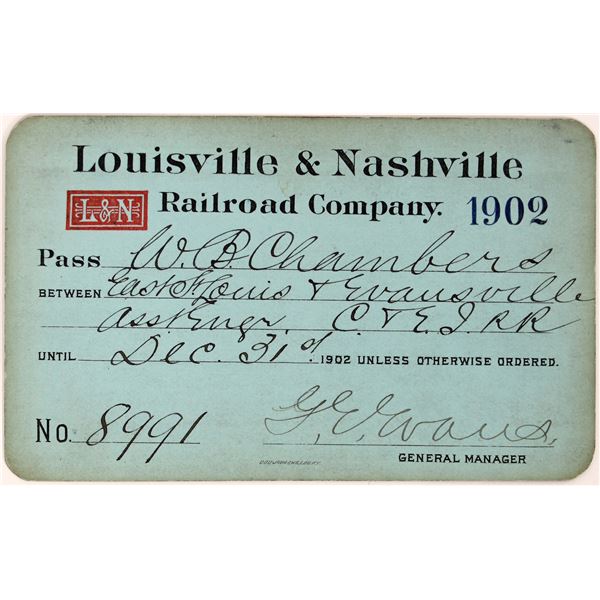 Louisville & Nashville
L&N Railroad Company. 1902
Pass W. B Chambers
BETWEEN East St Louis & Evansville
Asst Engr. C. & E. I. RR
UNTIL Dec. 31st 1902 UNLESS OTHERWISE ORDERED.
No. 8991 G. E. Evans.
GENERAL MANAGER